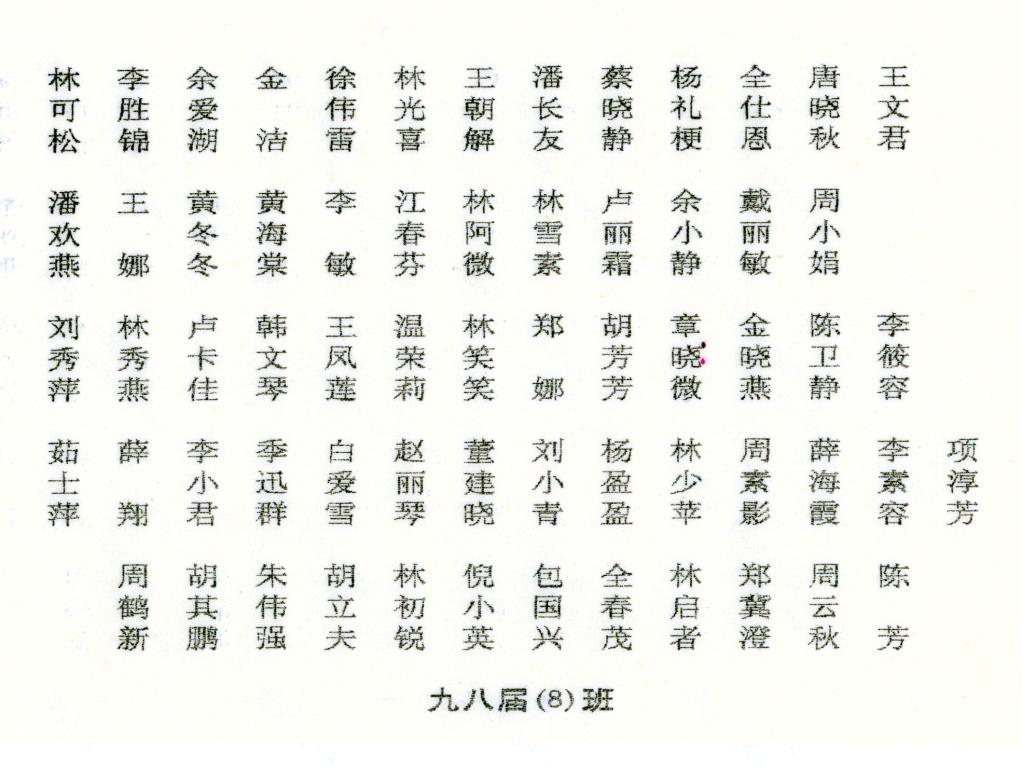 林可松 李胜锦 余爱湖 金洁 徐伟雷 林光喜 王朝解 潘长友 蔡晓静 杨礼梗 全仕恩 唐晓秋 王文君
潘欢燕 王娜 黄冬冬 黄海棠 李敏 江春芬 林阿微 林雪素 卢丽霜 余小静 戴丽敏 周小娟
刘秀萍 林秀燕 卢卡佳 韩文琴 王凤莲 温荣莉 林笑笑 郑娜 胡芳芳 章晓微 金晓燕 陈卫静 李筱容
茹士萍 薛翔 李小君 季迅群 白爱雪 赵丽琴 董建晓 刘小青 杨盈盈 林少苹 周素影 薛海霞 李素容 项淳芳
周鹤新 胡其鹏 朱伟强 胡立夫 林初锐 倪小英 包国兴 全春茂 林启者 郑冀澄 周云秋 陈芳
九八届(8)班